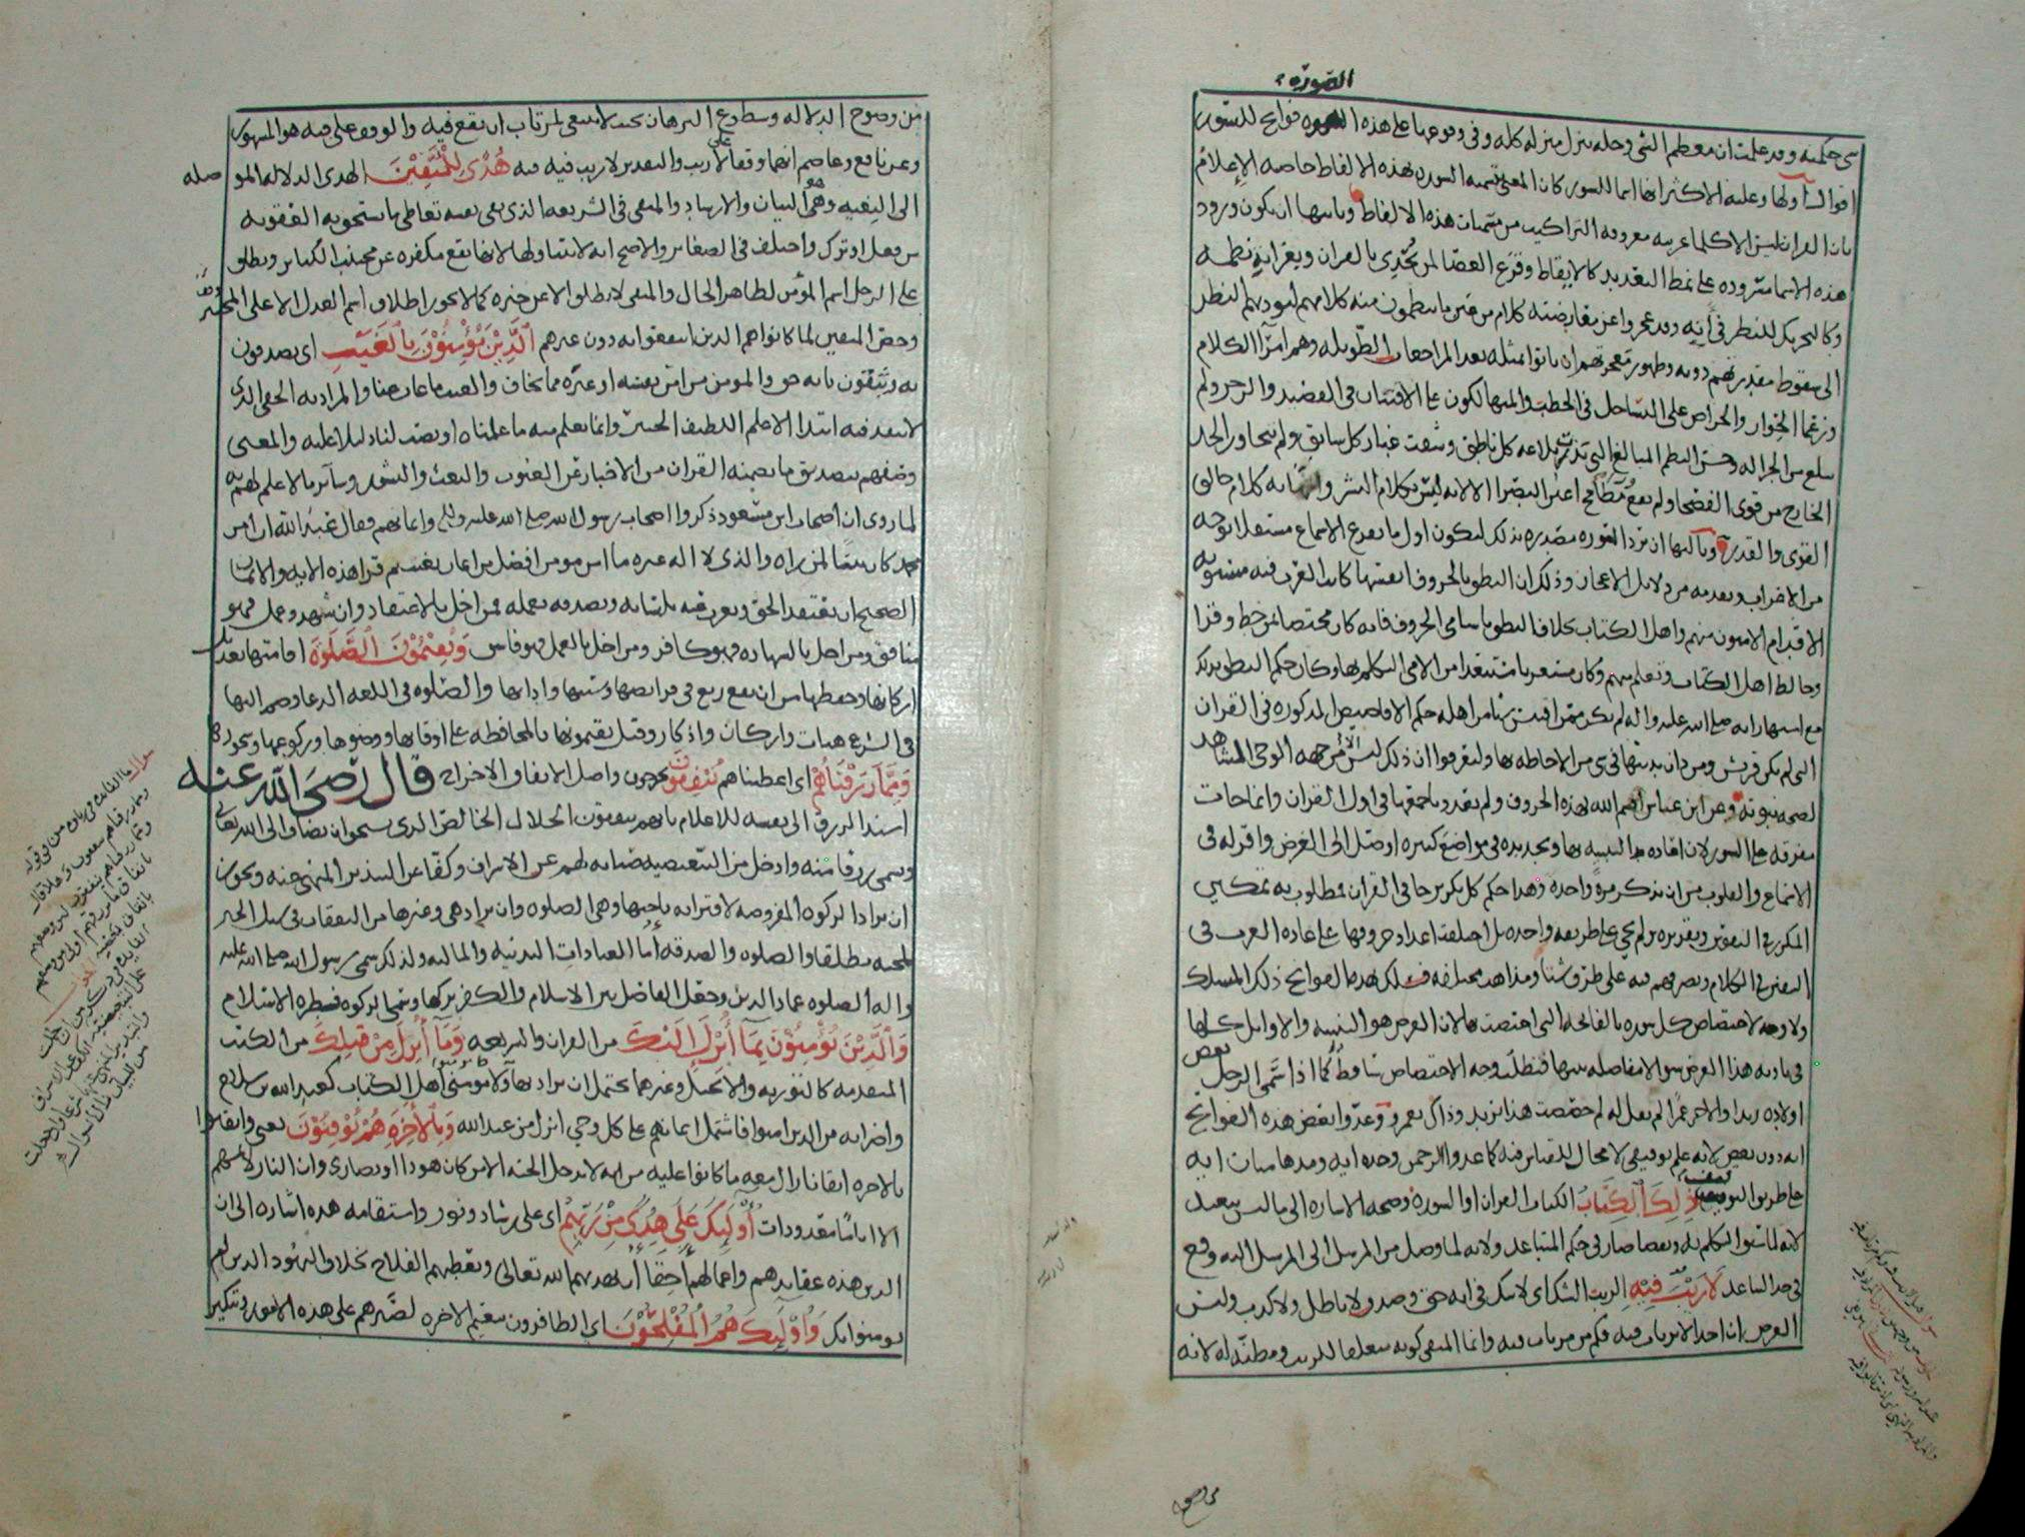 الصوره
شي حكمه وقد علمت ان معظم الشي وجله ينزل منزله كله وفي وقوعها على هذه الصوره فواتح للسور
اقوال اولها وعليه الاكثر انها اسما للسور كان المعنى بتسميه السوره بهذه الالفاظ خاصه الاعلام
بان القران ليس الا كلما عربيه معروفه التراكيب من مسميات هذه الالفاظ وثانيها ان يكون ورود
هذه الاسما مسروده على نمط التعديد كالايقاظ وقرع العصا لمن تحدي بالقران وبغرابه نظمه
وكالتحريك للنظر في انه وقد عجزوا عن معارضته كلام من عين ما ينظمون منه كلامهم ليوديهم النظر
الى سقوط مقدرتهم دونه وظهور معجزتهم ان ياتوا بمثله بعد المراجعات الطويله وهم امرآ الكلام
وزعما الحوار والحراص على التساجل في الخطب والمتهالكون على الافتنان في القصيد والرجز ولم
يبلغ من الجزاله وحسن النظم المبالغ التي بزت بلاغه كل ناطق وشقت غبار كل سابق ولم يتجاوز الحد
الخارج من قوى الفصحا ولم يقع مطامح اعين البصرا الا لانه ليس بكلام البشر وانه كلام خالق
القوى والقدر وثالثها ان ترد السوره مصدره بذلك ليكون اول ما يقرع الاسماع مستقلا بوجه
من الاغراب وتقدمه من دلايل الاعجاز وذلك ان النطق بالحروف انفسها كانت العرب فيه مستويه
الاقدام الاميون منهم واهل الكتاب بخلاف النطق باسامي الحروف فانه كان مختصا بمن خط وقرا
وخالط اهل الكتاب وتعلم منهم وكان مستغربا مستبعدا من الامي التكلم بها وكان حكم النطق بذلك
مع اشتهار انه صلى الله عليه واله لم يكن ممن اقتبس شيا من اهله حكم الاقاصيص المذكوره في القران
التي لم تكن قريش ومن دان بدينها في شي من الاحاطه بها وليعرفوا ان ذلك ليس الا من جهه الوحي المشاهد
لصحه نبوته وعن ابن عباس اقسم الله بهذه الحروف ولم يعدد باجمعها في اول القران وانما جات
مفرقه على السور لان اعاده التنبيه بها وتجديده في مواضع كثيره اوصل الى الغرض واقر له في
الاسماع والقلوب من ان يذكر مره واحده وهذا حكم كل تكرير جا في القران فمطلوب به تمكين
المكرر في النفوس وتقريره ولم يجي على طريقه واحده بل اختلفت اعداد حروفها على عاده العرب في
التفنن في الكلام وتصرفهم فيه على طرق شتا ومذاهب مختلفه فسلك بهذه الفواتح ذلك المسلك
ولا وجه لاختصاص كل سوره بالفاتحه التي اختصت بها لان الغرض هو التنبيه والاوايل كلها
في تاديه هذا الغرض سوا لا مفاضله بينها فتطلب وجه الاختصاص ساقط كما اذا سمى الرجل بعض
اولاده زيدا والاخر عمرا لم يقل له لم خصصت هذا بزيد وذاك بعمرو وعدوا بعض هذه الفواتح
ايه دون بعض لانه علم توقيفي لا مجال للقياس فيه كما عدوا الرحمن وحده ايه ومدهامتان ايه
على طريق التوقيف ذلك الكتاب الكتاب القران او السوره وصحه الاشاره الى ما ليس ببعيد
لانه لما سبق التكلم به وتقضا صار في حكم المتباعد ولانه لما وصل من المرسل الى المرسل اليه وقع
في حد التباعد لا ريب فيه الريب الشك اي لا شك في انه حق وصدق لا باطل ولا كذب وليس
الغرض ان احدا لا يرتاب فيه فكم من مرتاب فيه وانما المنفي كونه متعلقا للريب ومظنه له لانه
من وضوح الدلاله وسطوع البرهان بحيث لا ينبغي لمرتاب ان يقع فيه والوقف على فيه هو المشهور
وعن نافع وعاصم انهما وقفا على لا ريب والتقدير لا ريب فيه فيه هدى للمتقين الهدى الدلاله الموصله
الى البغيه وهو البيان والارشاد والمتقي في الشريعه الذي يقي نفسه تعاطي ما يستحق به العقوبه
من فعل او ترك واختلف في الصغاير والاصح انه لا يتناولها لانها تقع مكفره عن مجتنب الكباير ويطلق
على الرجل اسم المؤمن لظاهر الحال والمتقي لا يطلق الا عن خبره كما لا يجوز اطلاق اسم العدل الا على المختبر
وخص المتقين لما كانوا هم الذين انتفعوا به دون غيرهم الذين يؤمنون بالغيب اي يصدقون
به ويثقون بانه حق والمومن من امن نفسه او غيره مما يخاف والغيب ما غاب عنا والمراد به الخفي الذي
لا ينفذ فيه ابتدا الا علم اللطيف الخبير وانما يعلم منه ما علمناه او نصب لنا دليلا عليه والمعنى
وصفهم بتصديق ما يضمنه القران من الاخبار عن الغيوب والبعث والنشور وساير ما لا علم لهم به
لما روى ان اصحاب ابن مسعود ذكروا اصحاب رسول الله صلى الله عليه وايمانهم فقال عبد الله ان امر
محمد كان بينا لمن راه والذي لا اله غيره ما امن مومن افضل من ايمان بغيب ثم قرا هذه الايه والايمان
الصحيح ان يعتقد الحق ويعرب عنه بلسانه ويصدقه بعمله فمن اخل بالاعتقاد وان شهد وعمل فهو
منافق ومن اخل بالشهاده فهو كافر ومن اخل بالعمل فهو فاسق ويقيمون الصلوة اقامتها تعديل
اركانها وحفظها من ان يقع زيغ في فرايضها وسننها وادابها والصلوه في اللغه الدعا وضم اليها
في الشرع هيات واركان واذكار وقيل يقيمونها بالمحافظه على اوقاتها ووضوها وركوعها وسجودها
ومما رزقناهم اي اعطيناهم ينفقون يخرجون واصل الانفاق الاخراج قال رضي الله عنه
اسند الرزق الى نفسه للاعلام بانهم ينفقون الحلال الخالص الذي يستحق ان يضاف الى الله تعالى
ويسمى رزقا منه وادخل من التبعيضيه صيانه لهم عن الاسراف وكفا عن التبذير المنهي عنه ويجوز
ان يراد الزكوه المفروضه لاقترانه باختها وهي الصلوه وان يراد هي وغيرها من النفقات في سبل الخير
لمجيئه مطلقا والصلوه والصدقه اما العبادات البدنيه والماليه ولذلك سمى رسول الله صلى الله عليه
واله الصلوه عماد الدين وجعل الفاصل بين الاسلام والكفر تركها وسمى الزكوه قنطره الاسلام
والذين يؤمنون بما أنزل إليك من القران والشريعه وما أنزل من قبلك من الكتب
المتقدمه كالتوريه والانجيل وغيرهما يحتمل ان يراد بهاولا مومنوا اهل الكتاب كعبد الله بن سلام
واضرابه من الذين امنوا فاشتمل ايمانهم على كل وحي انزل من عند الله وبالآخرة هم يوقنون يعني وايقنوا
بالاخره ايقانا زال معه ما كانوا عليه من انه لا يدخل الجنه الا من كان هودا او نصارى وان النار لا تمسهم
الا اياما معدودات أولئك على هدى من ربهم اي على رشاد ونور واستقامه هذه اشاره الى ان
الذين هذه عقايدهم واعمالهم احقا ان يهديهم الله تعالى ويعطيهم الفلاح بخلاف اليهود الذين لم
يومنوا بك وأولئك هم المفلحون اي الظافرون بنعيم الاخره لصبرهم على هذه الامور وتنكير